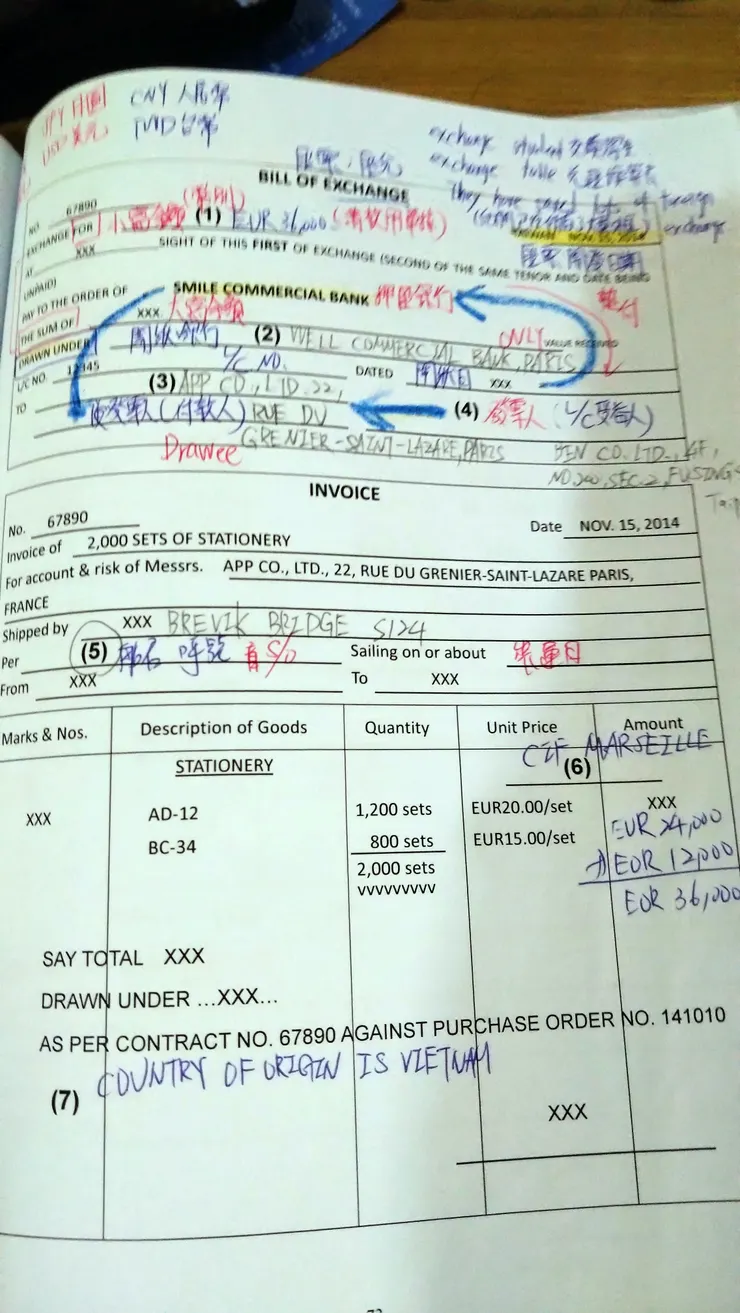 JPY 日圓 CNY 人民幣
USD 美元 TWD 台幣
exchange student 交換學生
exchange table
They have gaged lots of foreign exchange
BILL OF EXCHANGE
NO. 67890
TAIWAN NOV. 15, 2014
EXCHANGE FOR 小寫金額 (1) EUR 36,000
AT XXX SIGHT OF THIS FIRST OF EXCHANGE (SECOND OF THE SAME TENOR AND DATE BEING
UNPAID)
PAY TO THE ORDER OF SMILE COMMERCIAL BANK 押匯銀行
THE SUM OF XXX 大寫金額 ONLY VALUE RECEIVED
DRAWN UNDER 開狀銀行 (2) WELL COMMERCIAL BANK, PARIS
L/C NO. 12345 L/C NO. DATED 開狀日 XXX
TO (3) APP CO., LTD. 22,
被發票人(付款人) RUE DU (4) 發票人 (L/C受益人)
Drawee GRENIER-SAINT-LAZARE, PARIS
CO. LTD., 4F,
NO.200, SEC.2, FUSING
INVOICE
No. 67890 Date NOV. 15, 2014
Invoice of 2,000 SETS OF STATIONERY
For account & risk of Messrs. APP CO., LTD., 22, RUE DU GRENIER-SAINT-LAZARE PARIS,
FRANCE
Shipped by XXX BREVIK BRIDGE S124
Per (5) 船名 呼號 看 S/O Sailing on or about 裝運日
From XXX To XXX
Marks & Nos. Description of Goods Quantity Unit Price Amount
CIF MARSEILLE
STATIONERY (6)
XXX AD-12 1,200 sets EUR20.00/set XXX
EUR 24,000
BC-34 800 sets EUR15.00/set
EUR 12,000
2,000 sets
VVVVVVVVV
EUR 36,000
SAY TOTAL XXX
DRAWN UNDER ...XXX...
AS PER CONTRACT NO. 67890 AGAINST PURCHASE ORDER NO. 141010
(7) COUNTRY OF ORIGIN IS VIETNAM
XXX